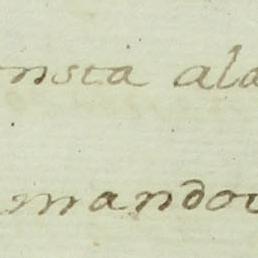 nsta ala
mandou